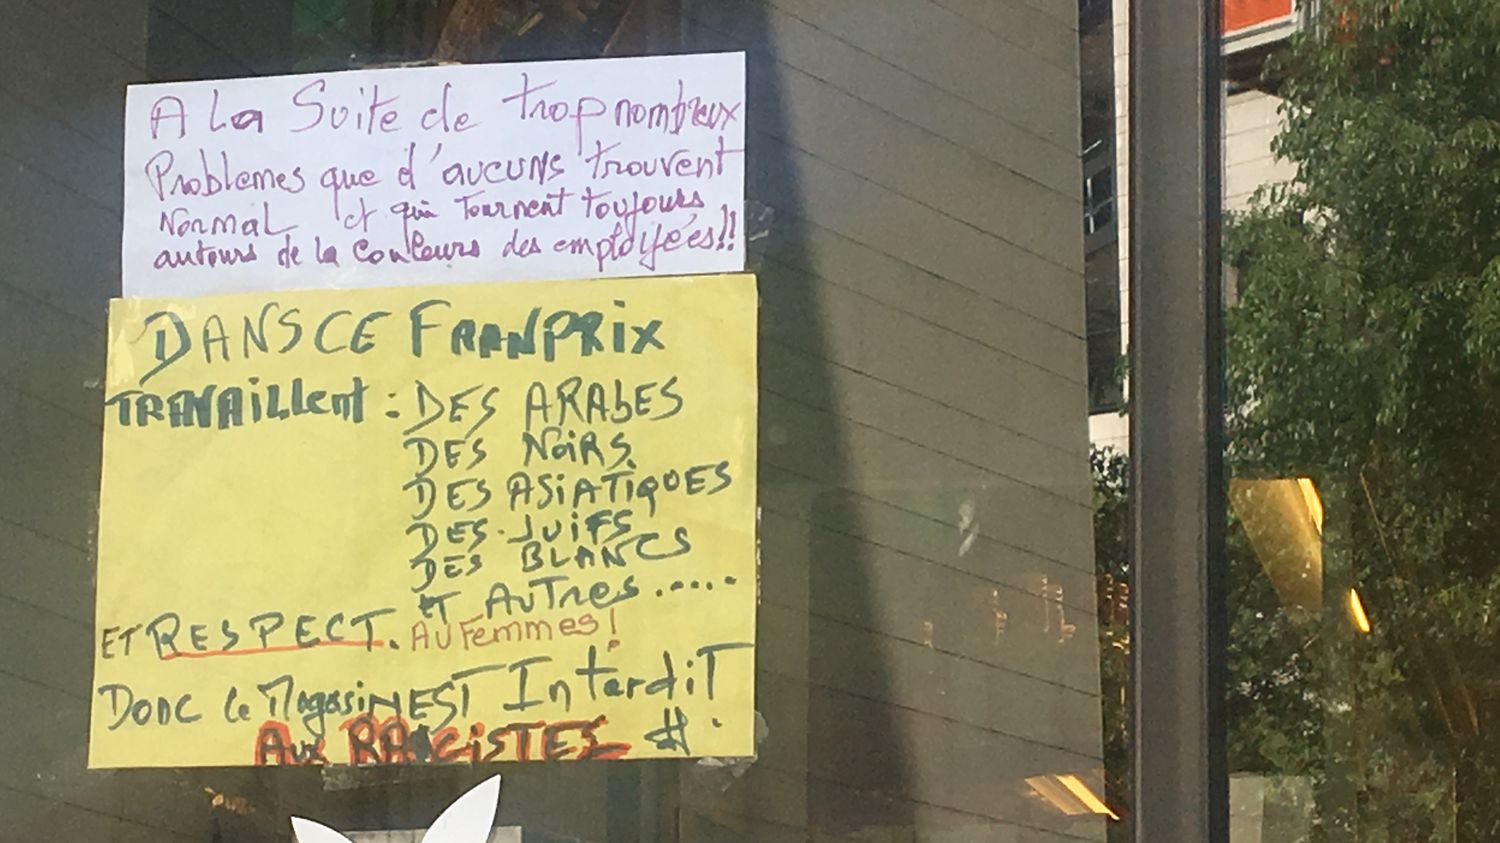 A La Suite de trop nombreux
Problemes que d'aucuns trouvent
Normal et qui Tournent toujours
auteurs de la Couleurs des employées!!
DANS CE FRANPRIX
TRAVAillent : DES ARAbES
DES NOiRS
DES ASiATiQUES
DES JUiFS
DES BLANCS
ET AUTRES.....
ET RESPECT. AU Femmes!
DONC le MagasiN EST InterdiT
AUX RACiSTES